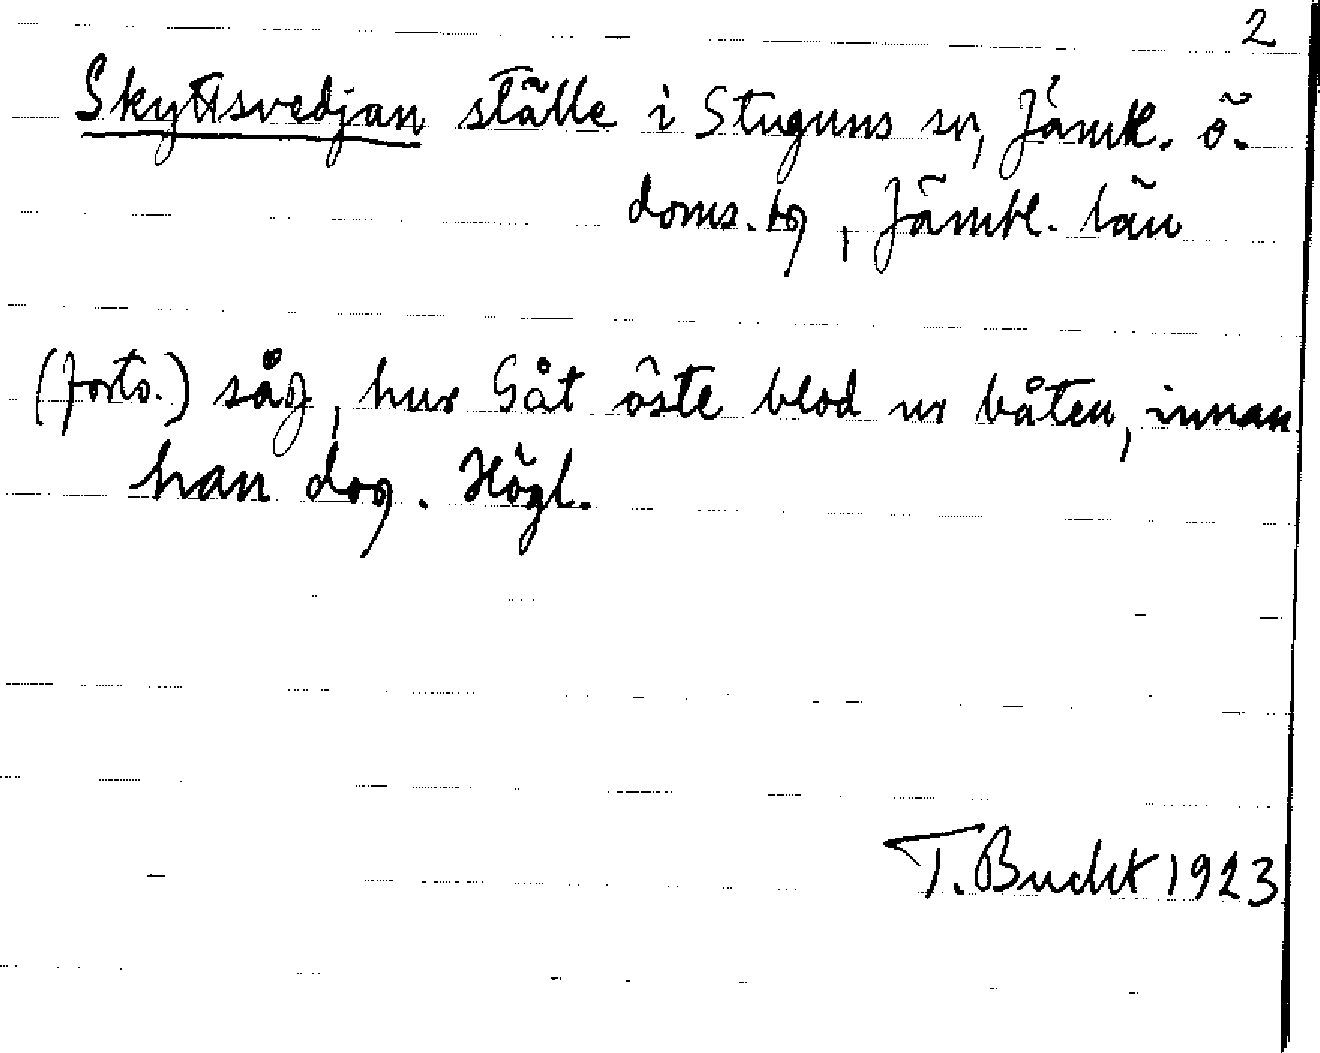 2
Skyttsvedjan ställe i Stuguns sn, Jämtl. ö.
doms.tg, Jämtl. län
(forts.) såg, hur Gåt öste blod ur båten, innan
han dog. Högl.
T. Bucht 1923